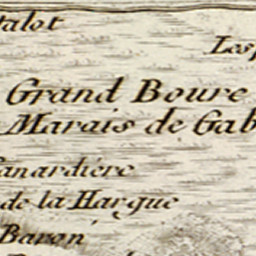 talot
Lesp
Grand Boure
Marais de Gab
anardiére
de la Hargue
Baron